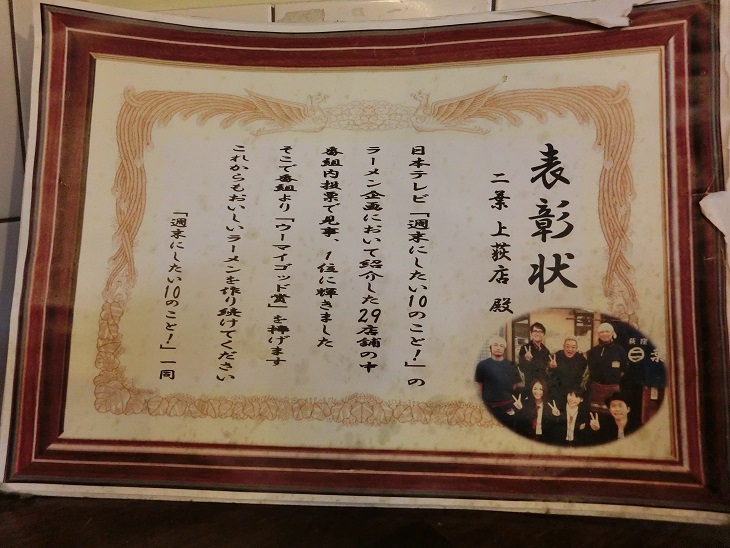 表彰状
二葉 上荻店 殿
日本テレビ「週末にしたい10のこと!」の
ラーメン企画において紹介した29店舗の中
番組内投票で見事、1位に輝きました
そこで番組より「ウーマイゴッド賞」を捧げます
これからもおいしいラーメンを作り続けてください
「週末にしたい10のこと!」一同
荻窪
二葉